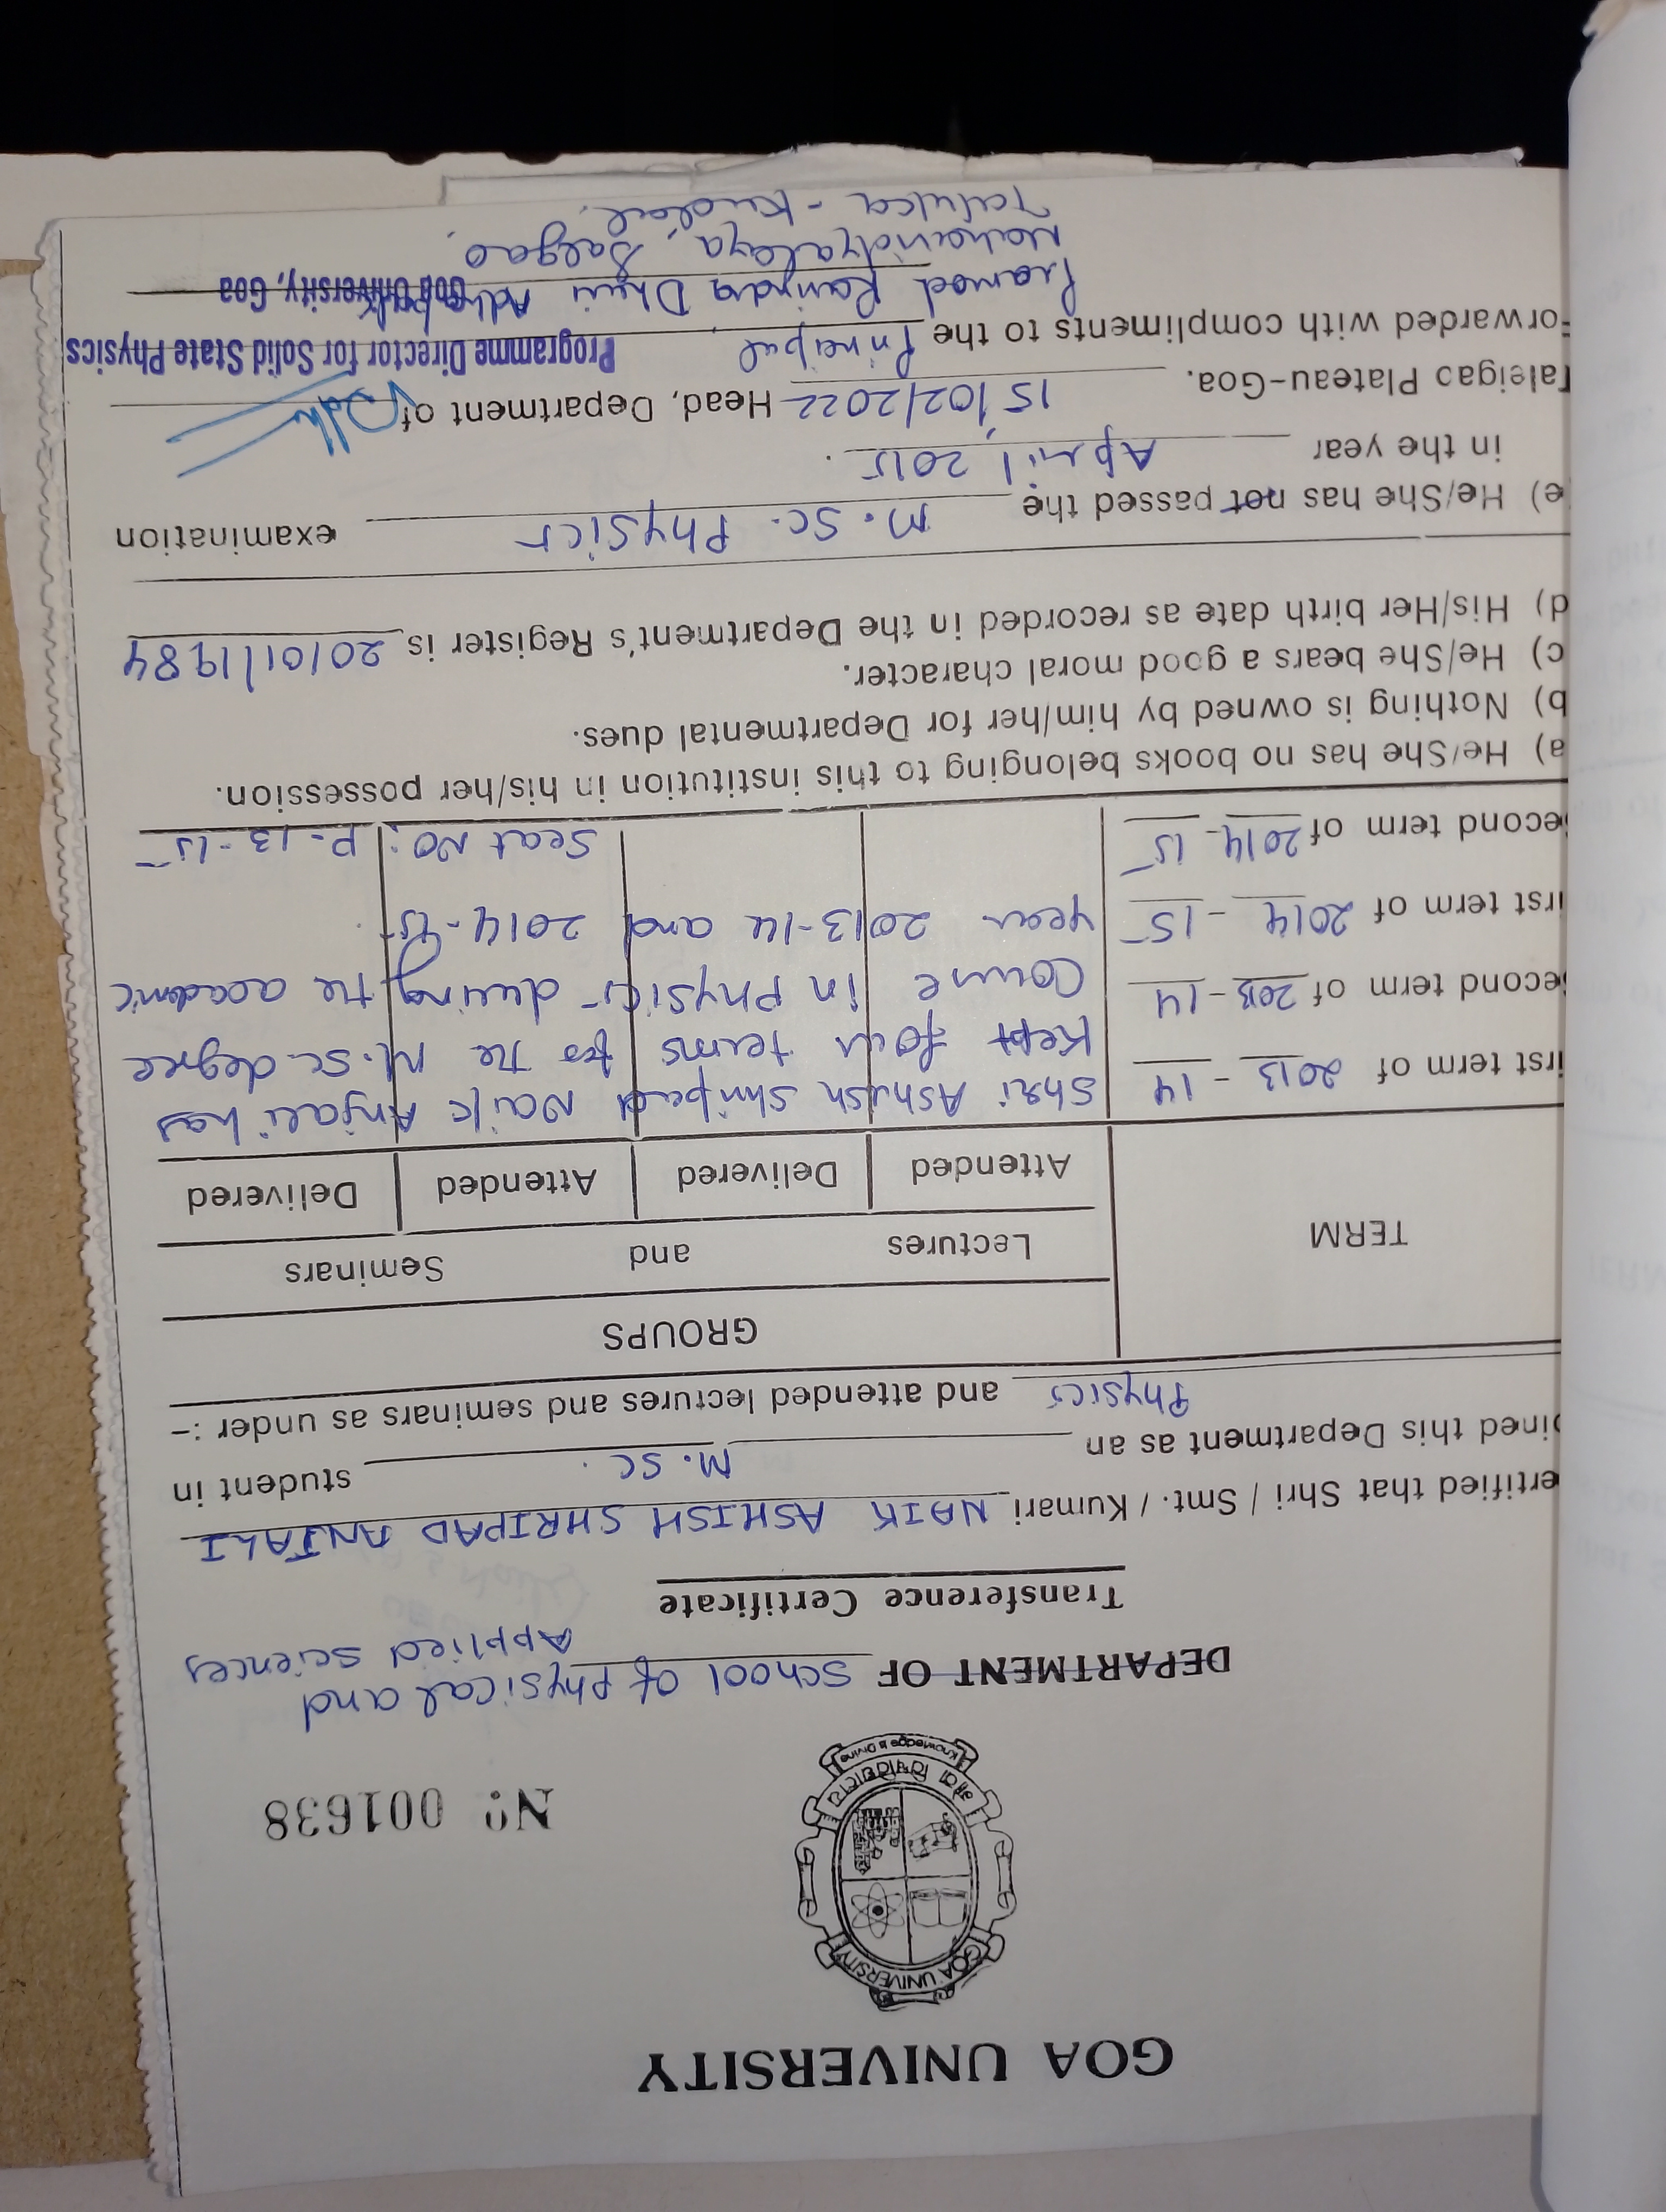 GOA UNIVERSITY
GOA UNIVERSITY
Knowledge is Divine
No 001638
DEPARTMENT OF School of Physical and
Applied Sciences
Transference Certificate
ertified that Shri / Smt. / Kumari NAIK ASHISH SHRIPAD ANJALI
oined this Department as an M.Sc. student in
Physics and attended lectures and seminars as under :-
TERM
GROUPS
Lectures and Seminars
Attended Delivered Attended Delivered
irst term of 2013 - 14
Second term of 2013 - 14
irst term of 2014 - 15
Second term of 2014 - 15
Shri Ashish Shripad Naik Anjali has
kept four terms for the M.Sc degree
Course in Physics during the academic
year 2013-14 and 2014-15.
Seat No: P-13-15
a) He/She has no books belonging to this institution in his/her possession.
b) Nothing is owned by him/her for Departmental dues.
c) He/She bears a good moral character.
d) His/Her birth date as recorded in the Department's Register is 20/01/1984
e) He/She has not passed the M.Sc. Physics examination
in the year April 2015.
Taleigao Plateau-Goa. 15/02/2022 Head, Department of
Programme Director for Solid State Physics
Goa University, Goa
Forwarded with compliments to the Principal
Pramod Ravindra Dhuri
Mahavidyalaya, Salgao,
Taluka - Kudal.